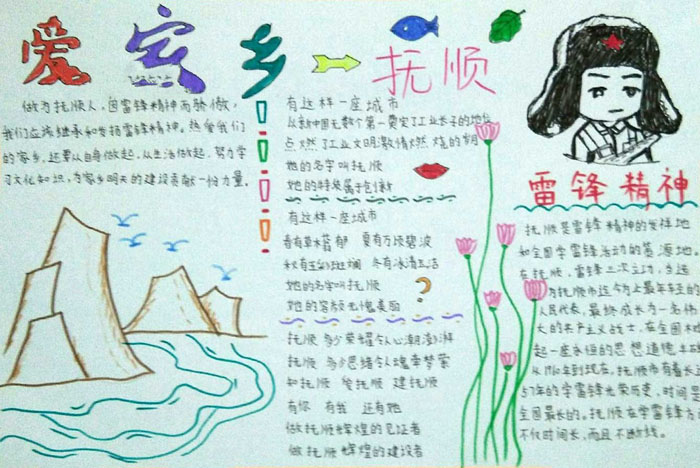 爱家乡
抚顺
做为抚顺人，因雷锋精神而骄傲，
我们应该继承和发扬雷锋精神。热爱我们
的家乡，还要从自身做起，从生活做起，努力学
习文化知识，为家乡明天的建设贡献一份力量。
有这样一座城市
从新中国无数个第一奠定了工业长子的地位
点燃了工业文明激情燃烧的
她的名字叫抚顺
她的特质属于创新
有这样一座城市
春有草木蓊郁 夏有万顷碧波
秋有五彩斑斓 冬有冰清玉洁
她的名字叫抚顺
她的容颜无愧美丽
抚顺 多少荣耀令人心潮澎湃
抚顺 多少思绪令人魂牵梦萦
知抚顺 爱抚顺 建抚顺
有你 有我 还有她
做抚顺辉煌的见证者
做抚顺辉煌的建设者
雷锋精神
抚顺是雷锋精神的发祥地
和全国学雷锋活动的策源地。
在抚顺，雷锋三次立功，当选
为抚顺市迄今为止最年轻的
人民代表，最终成长为一名伟
大的共产主义战士，在全国木
起一座永恒的思想道德丰
从1960年到现在，抚顺市有着长
57年的学雷锋光荣历史，时间是
全国最长的。抚顺在学雷锋方
不仅时间长，而且不断线。